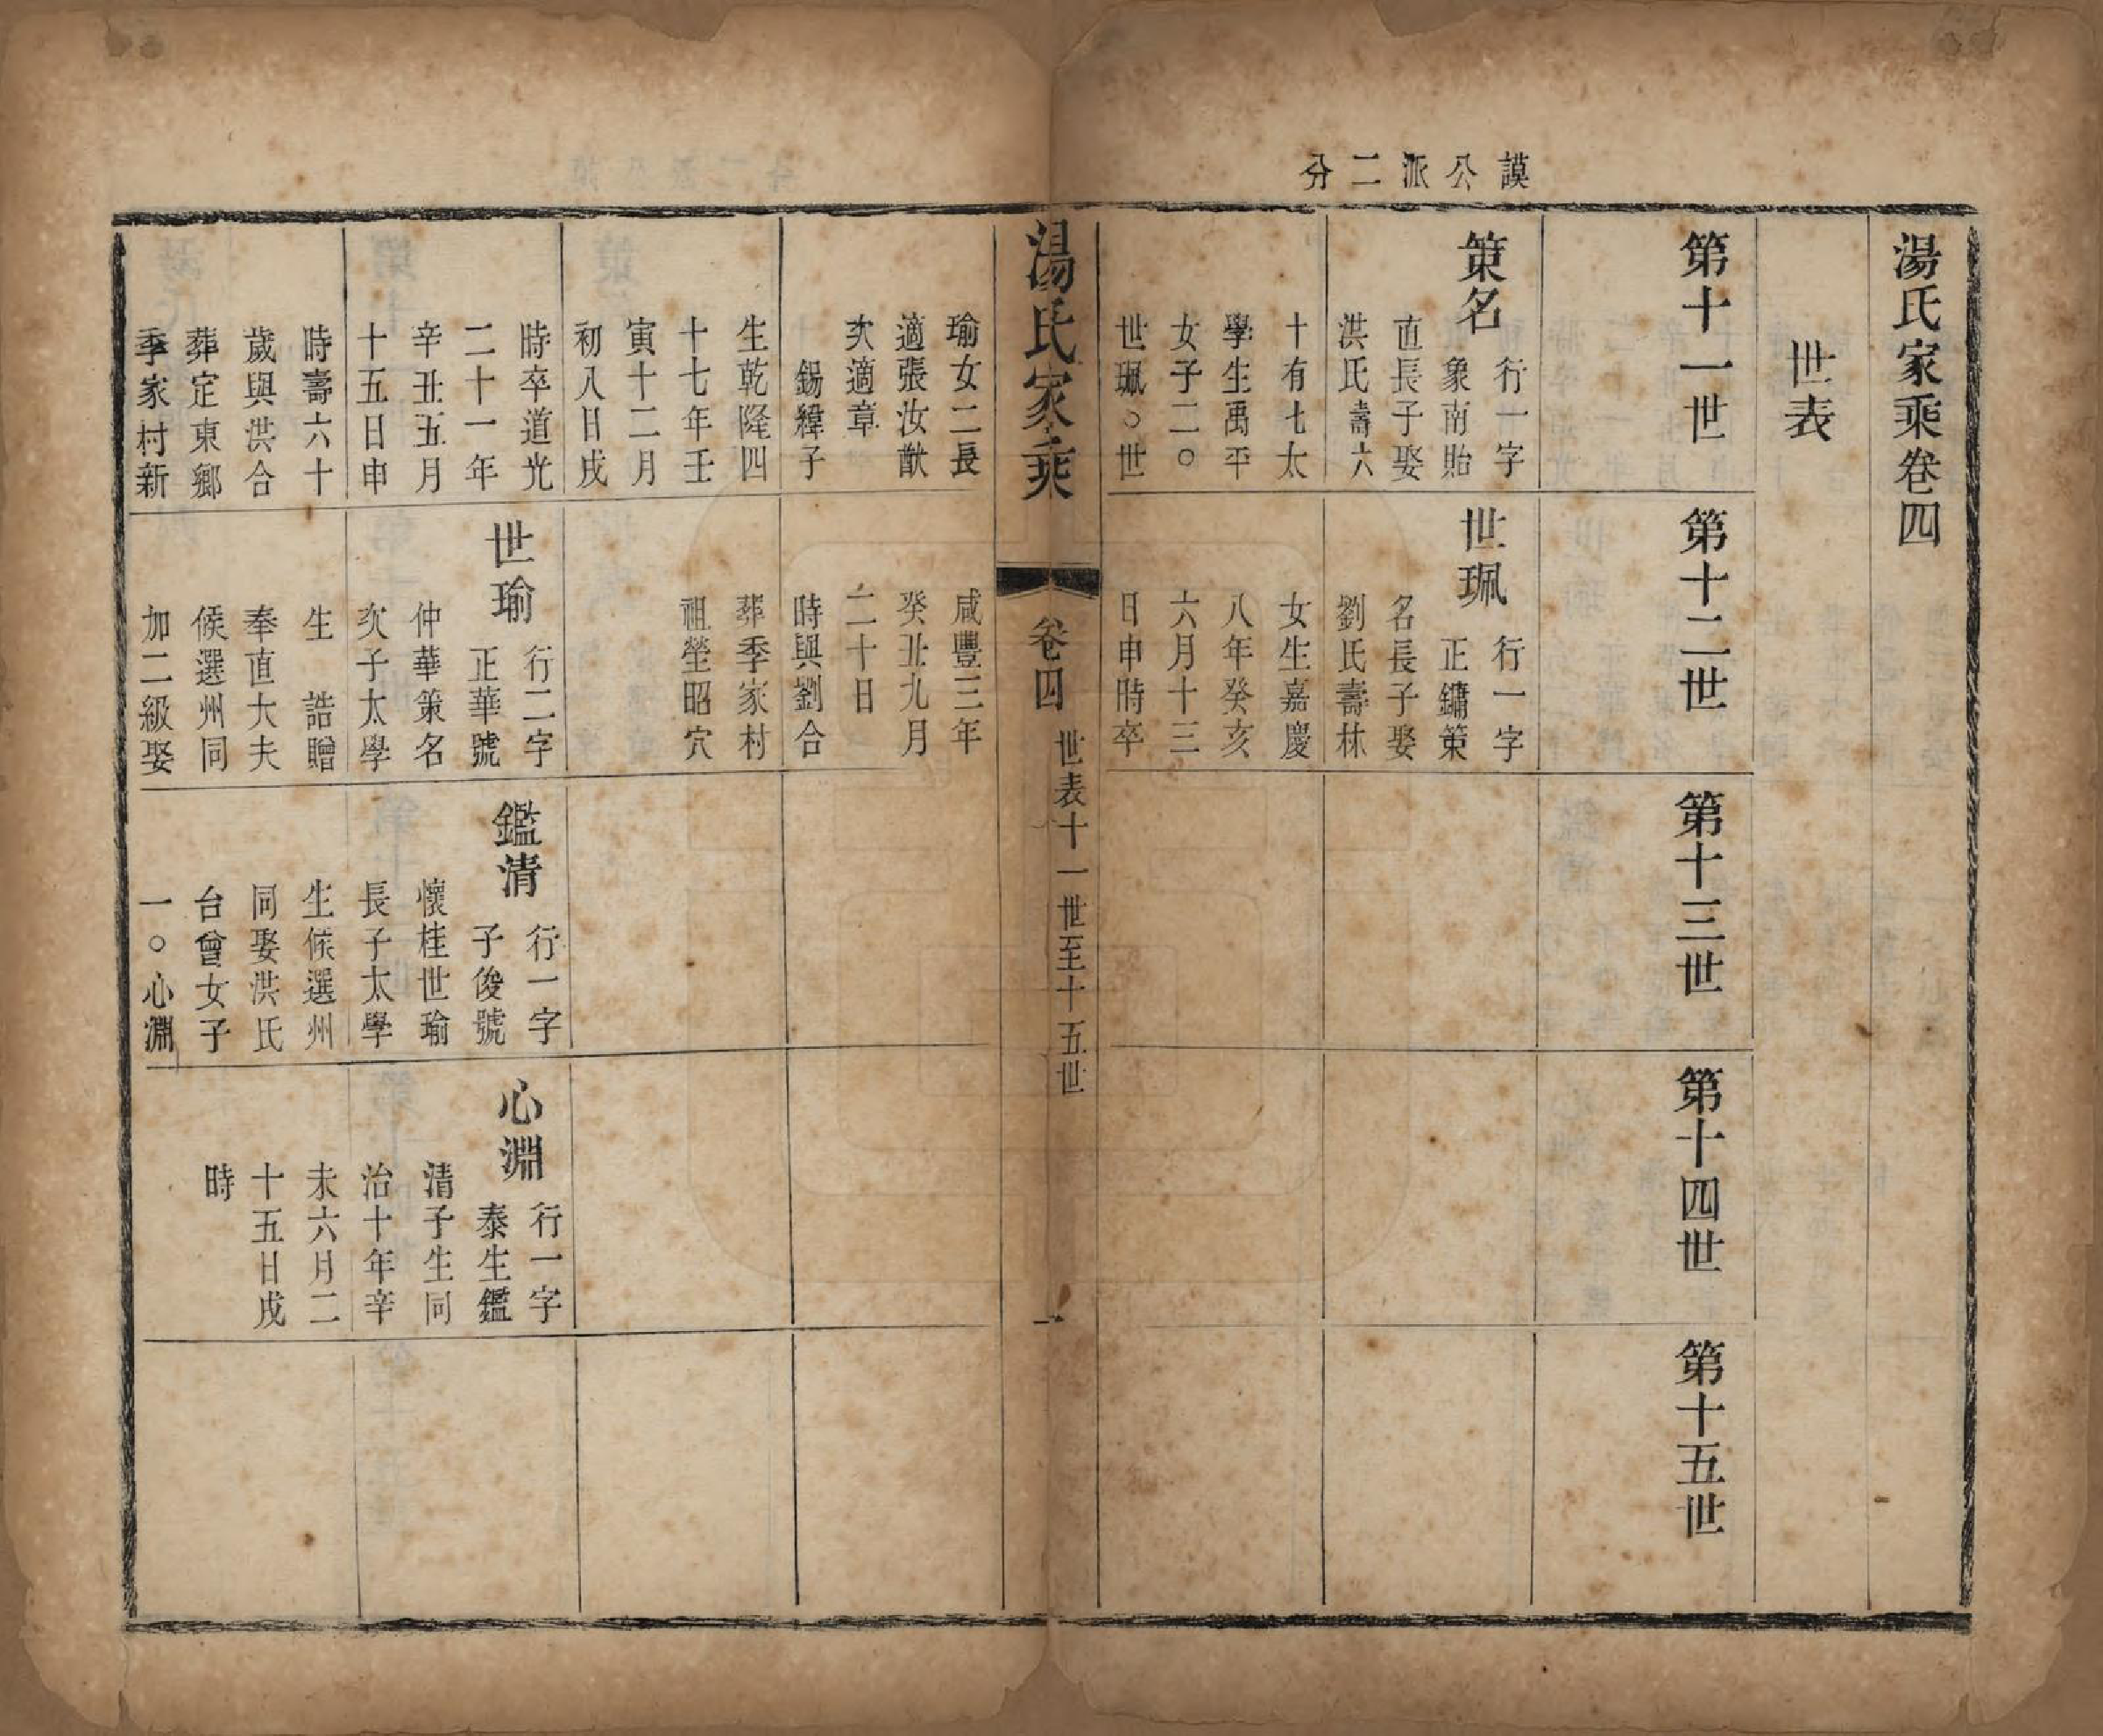 謨公派二分
湯氏家乘卷四
世表
第十一世
第十二世
第十三世
第十四世
第十五世
策名
行一字
象南貽
直長子娶
洪氏壽六
十有七太
學生禹平
女子二○
世珮○世
世珮
行一字
正鏞策
名長子娶
劉氏壽林
女生嘉慶
八年癸亥
六月十三
日申時卒
湯氏家乘
卷四
世表十一世至十五世
一
瑜女二長
適張汝猷
次適章
錫緯子
生乾隆四
十七年壬
寅十二月
初八日戌
時卒道光
二十一年
辛丑五月
十五日申
時壽六十
歲與洪合
葬定東鄉
季家村新
咸豐三年
癸丑九月
二十日
時與劉合
葬季家村
祖塋昭穴
世瑜
行二字
正華號
仲華策名
次子太學
生 誥贈
奉直大夫
候選州同
加二級娶
鑑清
行一字
子俊號
懷桂世瑜
長子太學
生候選州
同娶洪氏
台曾女子
一○心淵
心淵
行一字
泰生鑑
清子生同
治十年辛
未六月二
十五日戌
時